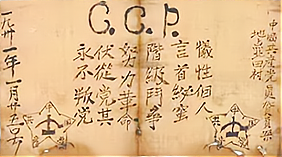 C.C.P.
中國共産党員
地点北田村
犧牲個人
言首泌蜜
階級鬥爭
努力革命
伏從党其
永不叛党
一九卅一年一月廿五号